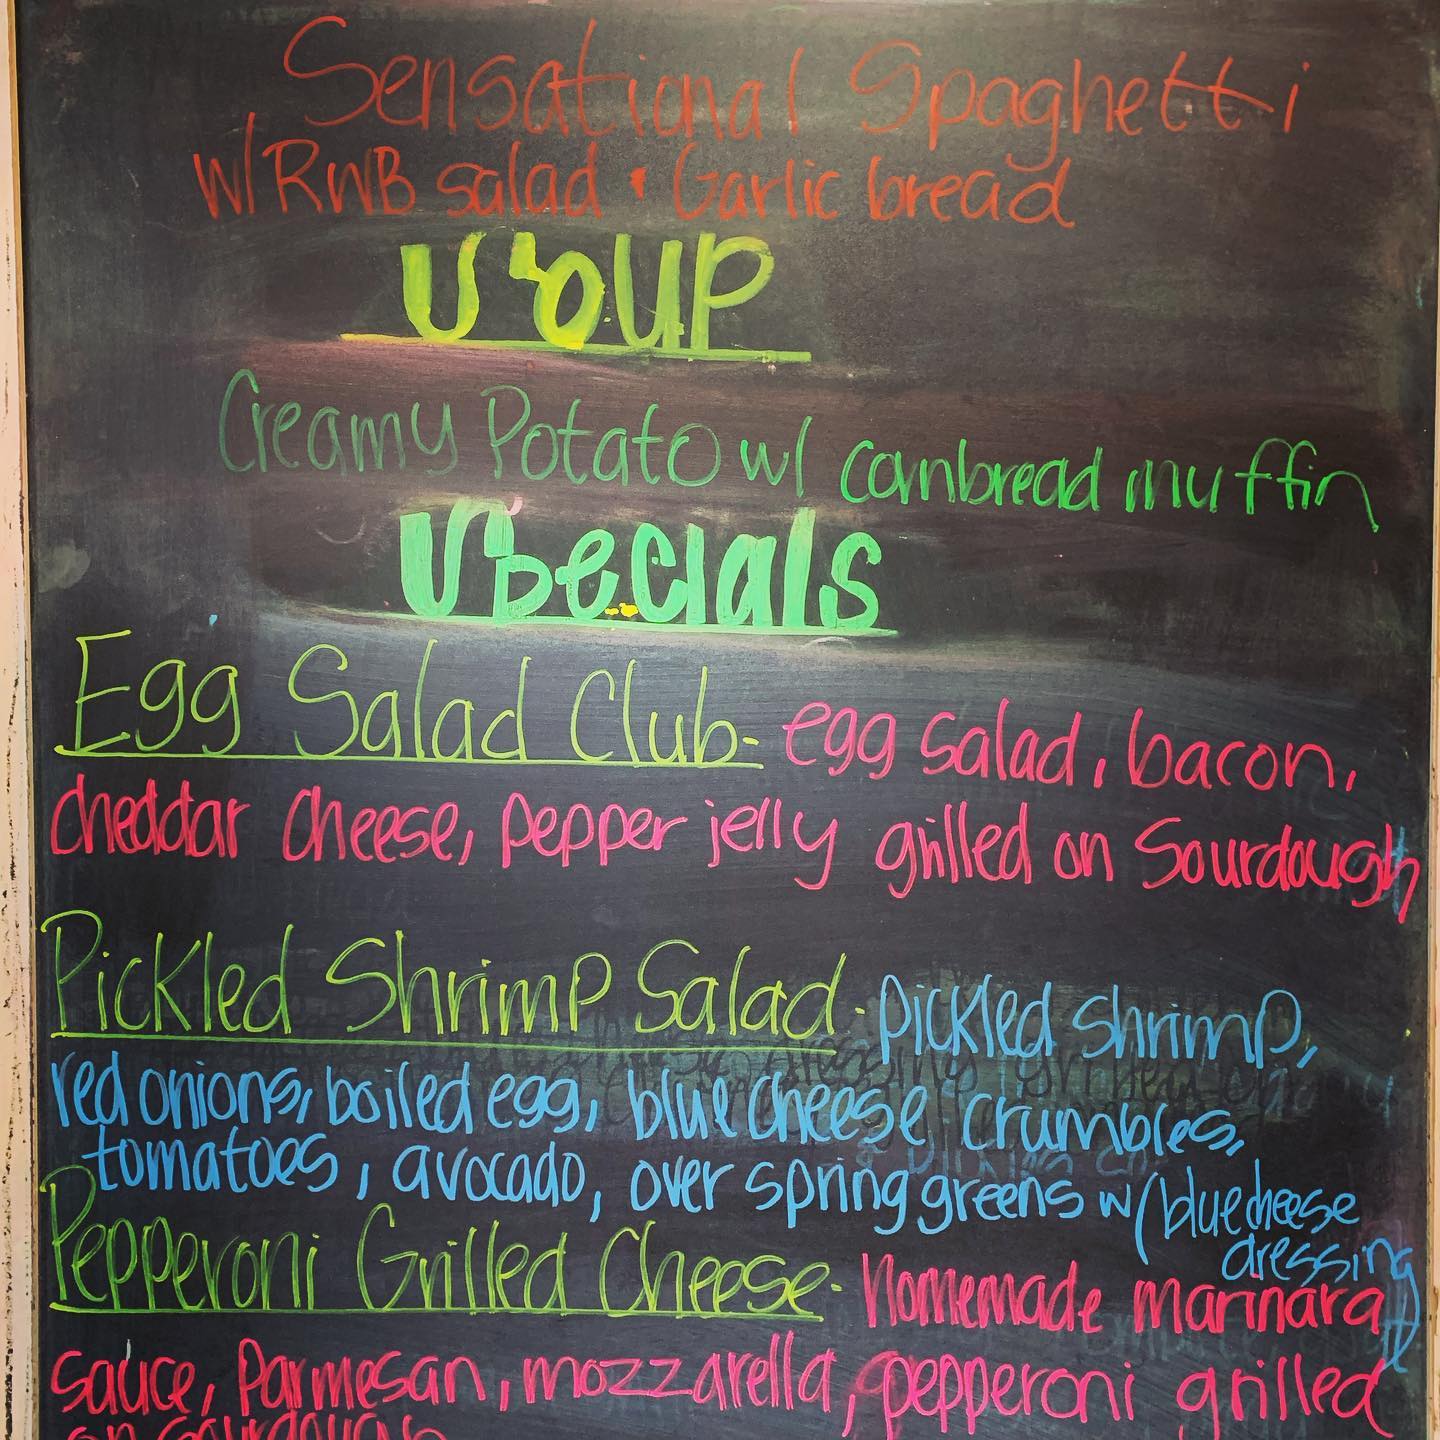 Sensational Spaghetti
w/ RWB salad • Garlic bread
SOUP
Creamy Potato w/ cornbread muffin
Specials
Egg Salad Club- egg salad, bacon,
cheddar cheese, pepper jelly grilled on Sourdough
Pickled Shrimp Salad- pickled shrimp,
red onions, boiled egg, blue cheese crumbles,
tomatoes, avocado, over spring greens w/ blue cheese
dressing
Pepperoni Grilled Cheese- homemade marinara
sauce, Parmesan, mozzarella, pepperoni grilled
on sourdough